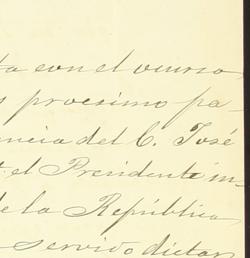 ta con el ocurso
s procsimo pa-
encia del C. José
el Presidente in-
de la República
servido dictar